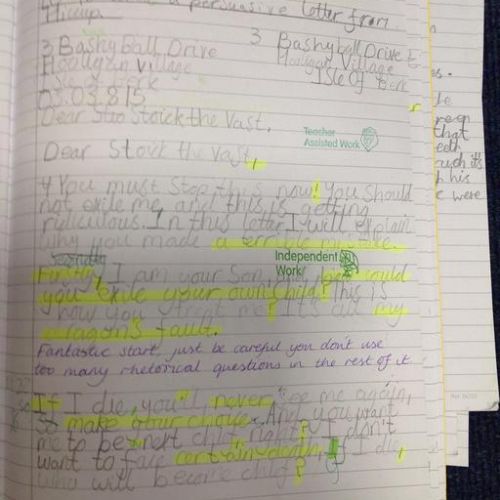 a persuasive letter from
Hiccup.
3 Bashyball Drive
3 Bashyball Drive
Hooligan Village
Hooligan Village
Isle of Berk
Isle of Berk
03.03.815
Dear Stoick the Vast,
Teacher
Assisted Work
Dear Stoick the Vast,
You must stop this now! You should
not exile me, and this is getting
ridiculous. In this letter I will explain
why you made a terrible mistake.
Independent
Work
Firstly, I am your Son, why would
you exile your own child? This is
how you treat me? It's all my
dragons fault.
Fantastic start, just be careful you don't use
too many rhetorical questions in the rest of it
If I die, you'll never see me again,
so make your choice. And you want
me to be next chief right? I don't
want to face certain death, if I die,
who will become chief?
that
his
were